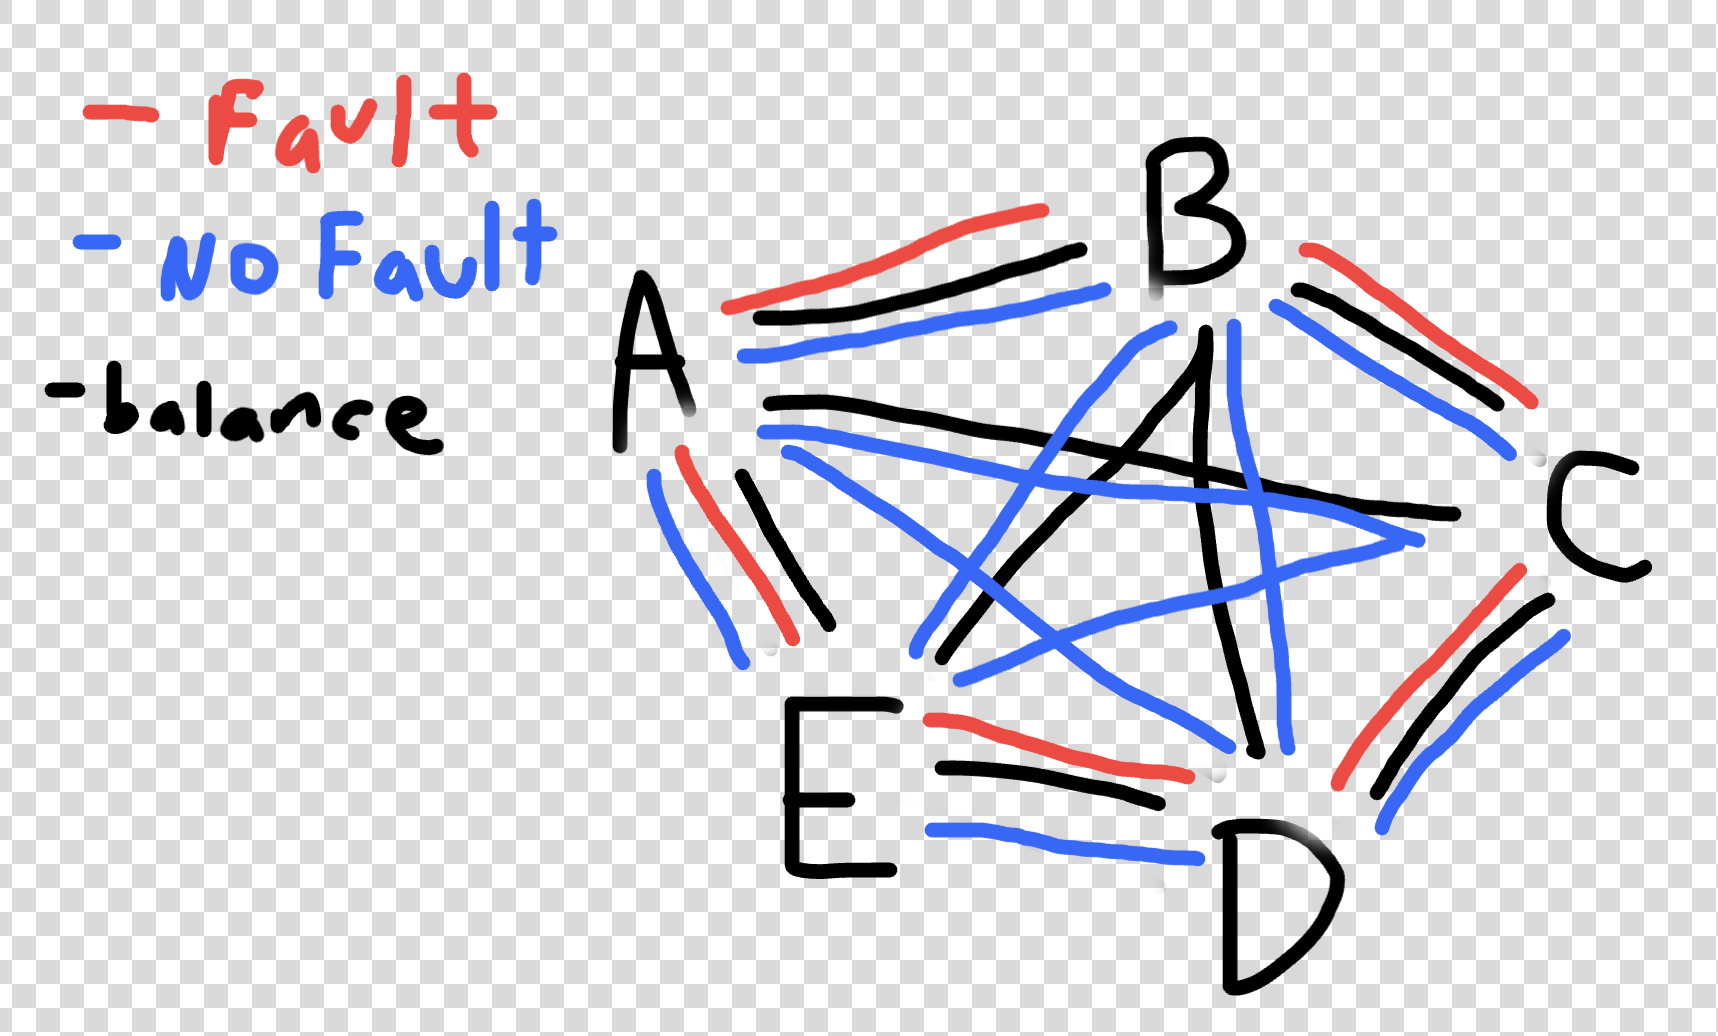 - Fault
- No Fault
- balance
B
A
C
E
D